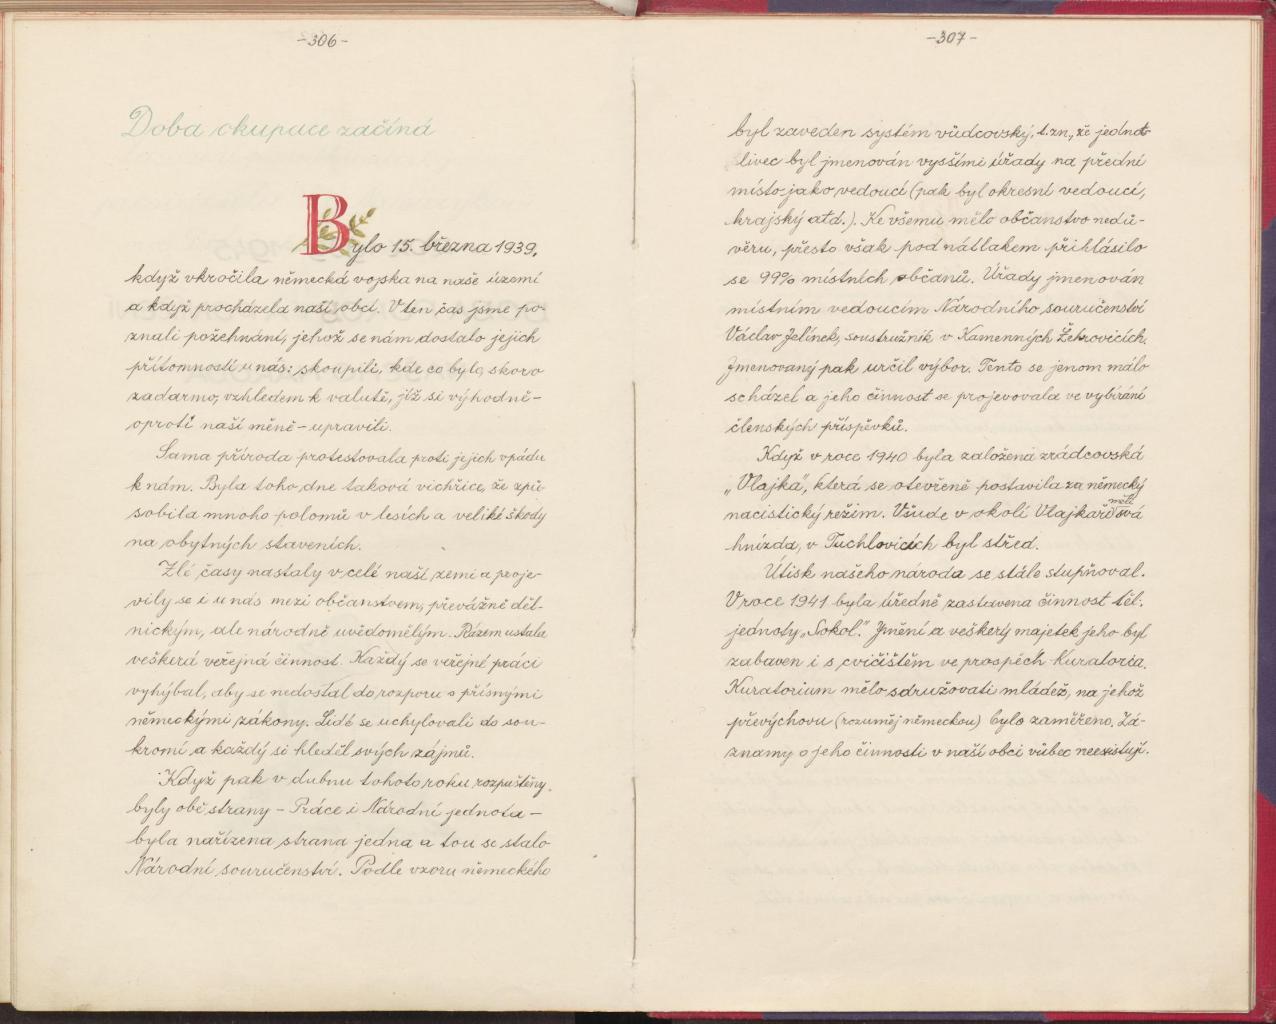 -306-
Doba okupace začíná
Bylo 15. března 1939,
když vkročila německá vojska na naše území
a když procházela naší obcí. V ten čas jsme po-
znali požehnání, jehož se nám dostalo jejich
přítomností u nás: skoupili, kde co bylo, skoro
zadarmo, vzhledem k valutě, jíž si výhodně -
oproti naší měně - upravili.
Sama příroda protestovala proti jejich vpádu
k nám. Byla toho dne taková vichřice, že způ-
sobila mnoho polomů v lesích a veliké škody
na obytných staveních.
Zlé časy nastaly v celé naší zemi a proje-
vily se i u nás mezi občanstvem, převážně děl-
nickým, ale národně uvědomělým. Rázem ustala
veškerá veřejná činnost. Každý se veřejné práci
vyhýbal, aby se nedostal do rozporu s přísnými
německými zákony. Lidé se uchylovali do sou-
kromí a každý si hleděl svých zájmů.
Když pak v dubnu tohoto roku rozpuštěny
byly obě strany - Práce i Národní jednota -
byla nařízena strana jedna a tou se stalo
Národní souručenství. Podle vzoru německého
-307-
byl zaveden systém vůdcovský, t.zn., že jednot-
livec byl jmenován vyššími úřady na přední
místo jako vedoucí (pak byl okresní vedoucí,
krajský atd.). Ke všemu mělo občanstvo nedů-
věru, přesto však pod nátlakem přihlásilo
se 99% místních občanů. Úřady jmenován
místním vedoucím Národního souručenství
Václav Jelínek, soustružník v Kamenných Žehrovicích.
Jmenovaný pak určil výbor. Tento se jenom málo
scházel a jeho činnost se projevovala ve vybírání
členských příspěvků.
Když v roce 1940 byla založená zrádcovská
„Vlajka“, která se otevřeně postavila za německý
nacistický režim. Všude v okolí Vlajkaři měli svá
hnízda, v Tuchlovicích byl střed.
Útisk našeho národa se stále stupňoval.
V roce 1941 byla úředně zastavena činnost těl.
jednoty „Sokol.“ Jmění a veškerý majetek jeho byl
zabaven i s cvičištěm ve prospěch Kuratoria.
Kuratorium mělo sdružovati mládež, na jehož
převýchovu (rozuměj německou) bylo zaměřeno. Zá-
znamy o jeho činnosti v naší obci vůbec neexistují.